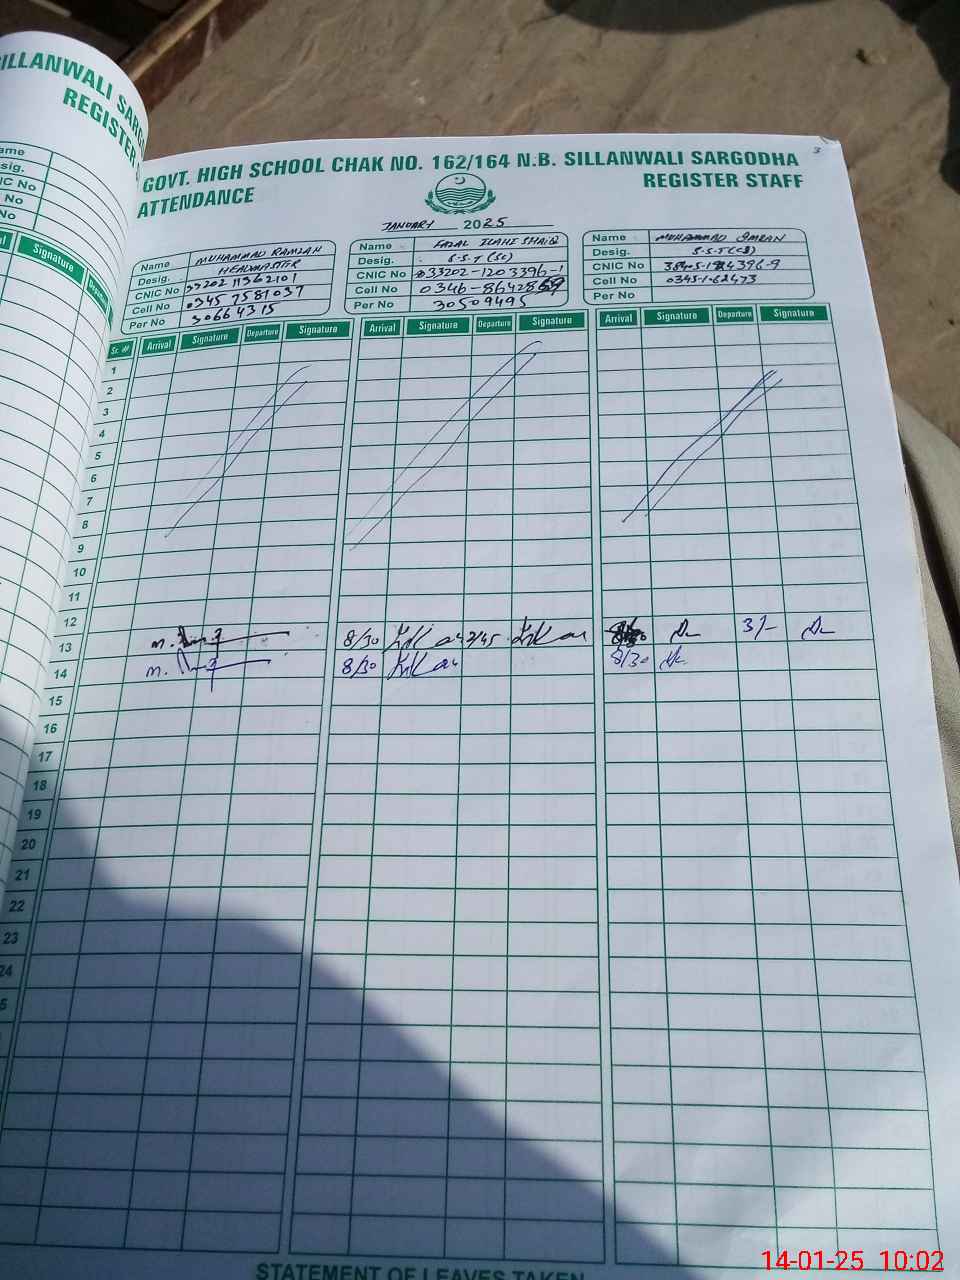 SILLANWALI SARG
REGISTER
ame
sig.
NIC No
No
No
Signature
Departure
GOVT. HIGH SCHOOL CHAK NO. 162/164 N.B. SILLANWALI SARGODHA
3
ATTENDANCE
REGISTER STAFF
JANUARY 2025
Name MUHAMMAD RAMZAN
Desig. HEADMASTER
CNIC No
Cell No 0345 7581037
Per No 30664315
Name FAZAL ILAHI SHAIQ
Desig. S.S.T (SC)
CNIC No 33202-1203396-1
Cell No 0346-8642869
Per No 30509495
Name MUHAMMAD IMRAN
Desig. S.S.T (CS)
CNIC No
Cell No
Per No
Sr. # Arrival Signature Departure Signature Arrival Signature Departure Signature Arrival Signature Departure Signature
1
2
3
4
5
6
7
8
9
10
11
12
13 8/30 2/45 3/-
14 8/30 8/30
15
16
17
18
19
20
21
22
23
24
5
STATEMENT OF LEAVES TAKEN
14-01-25 10:02